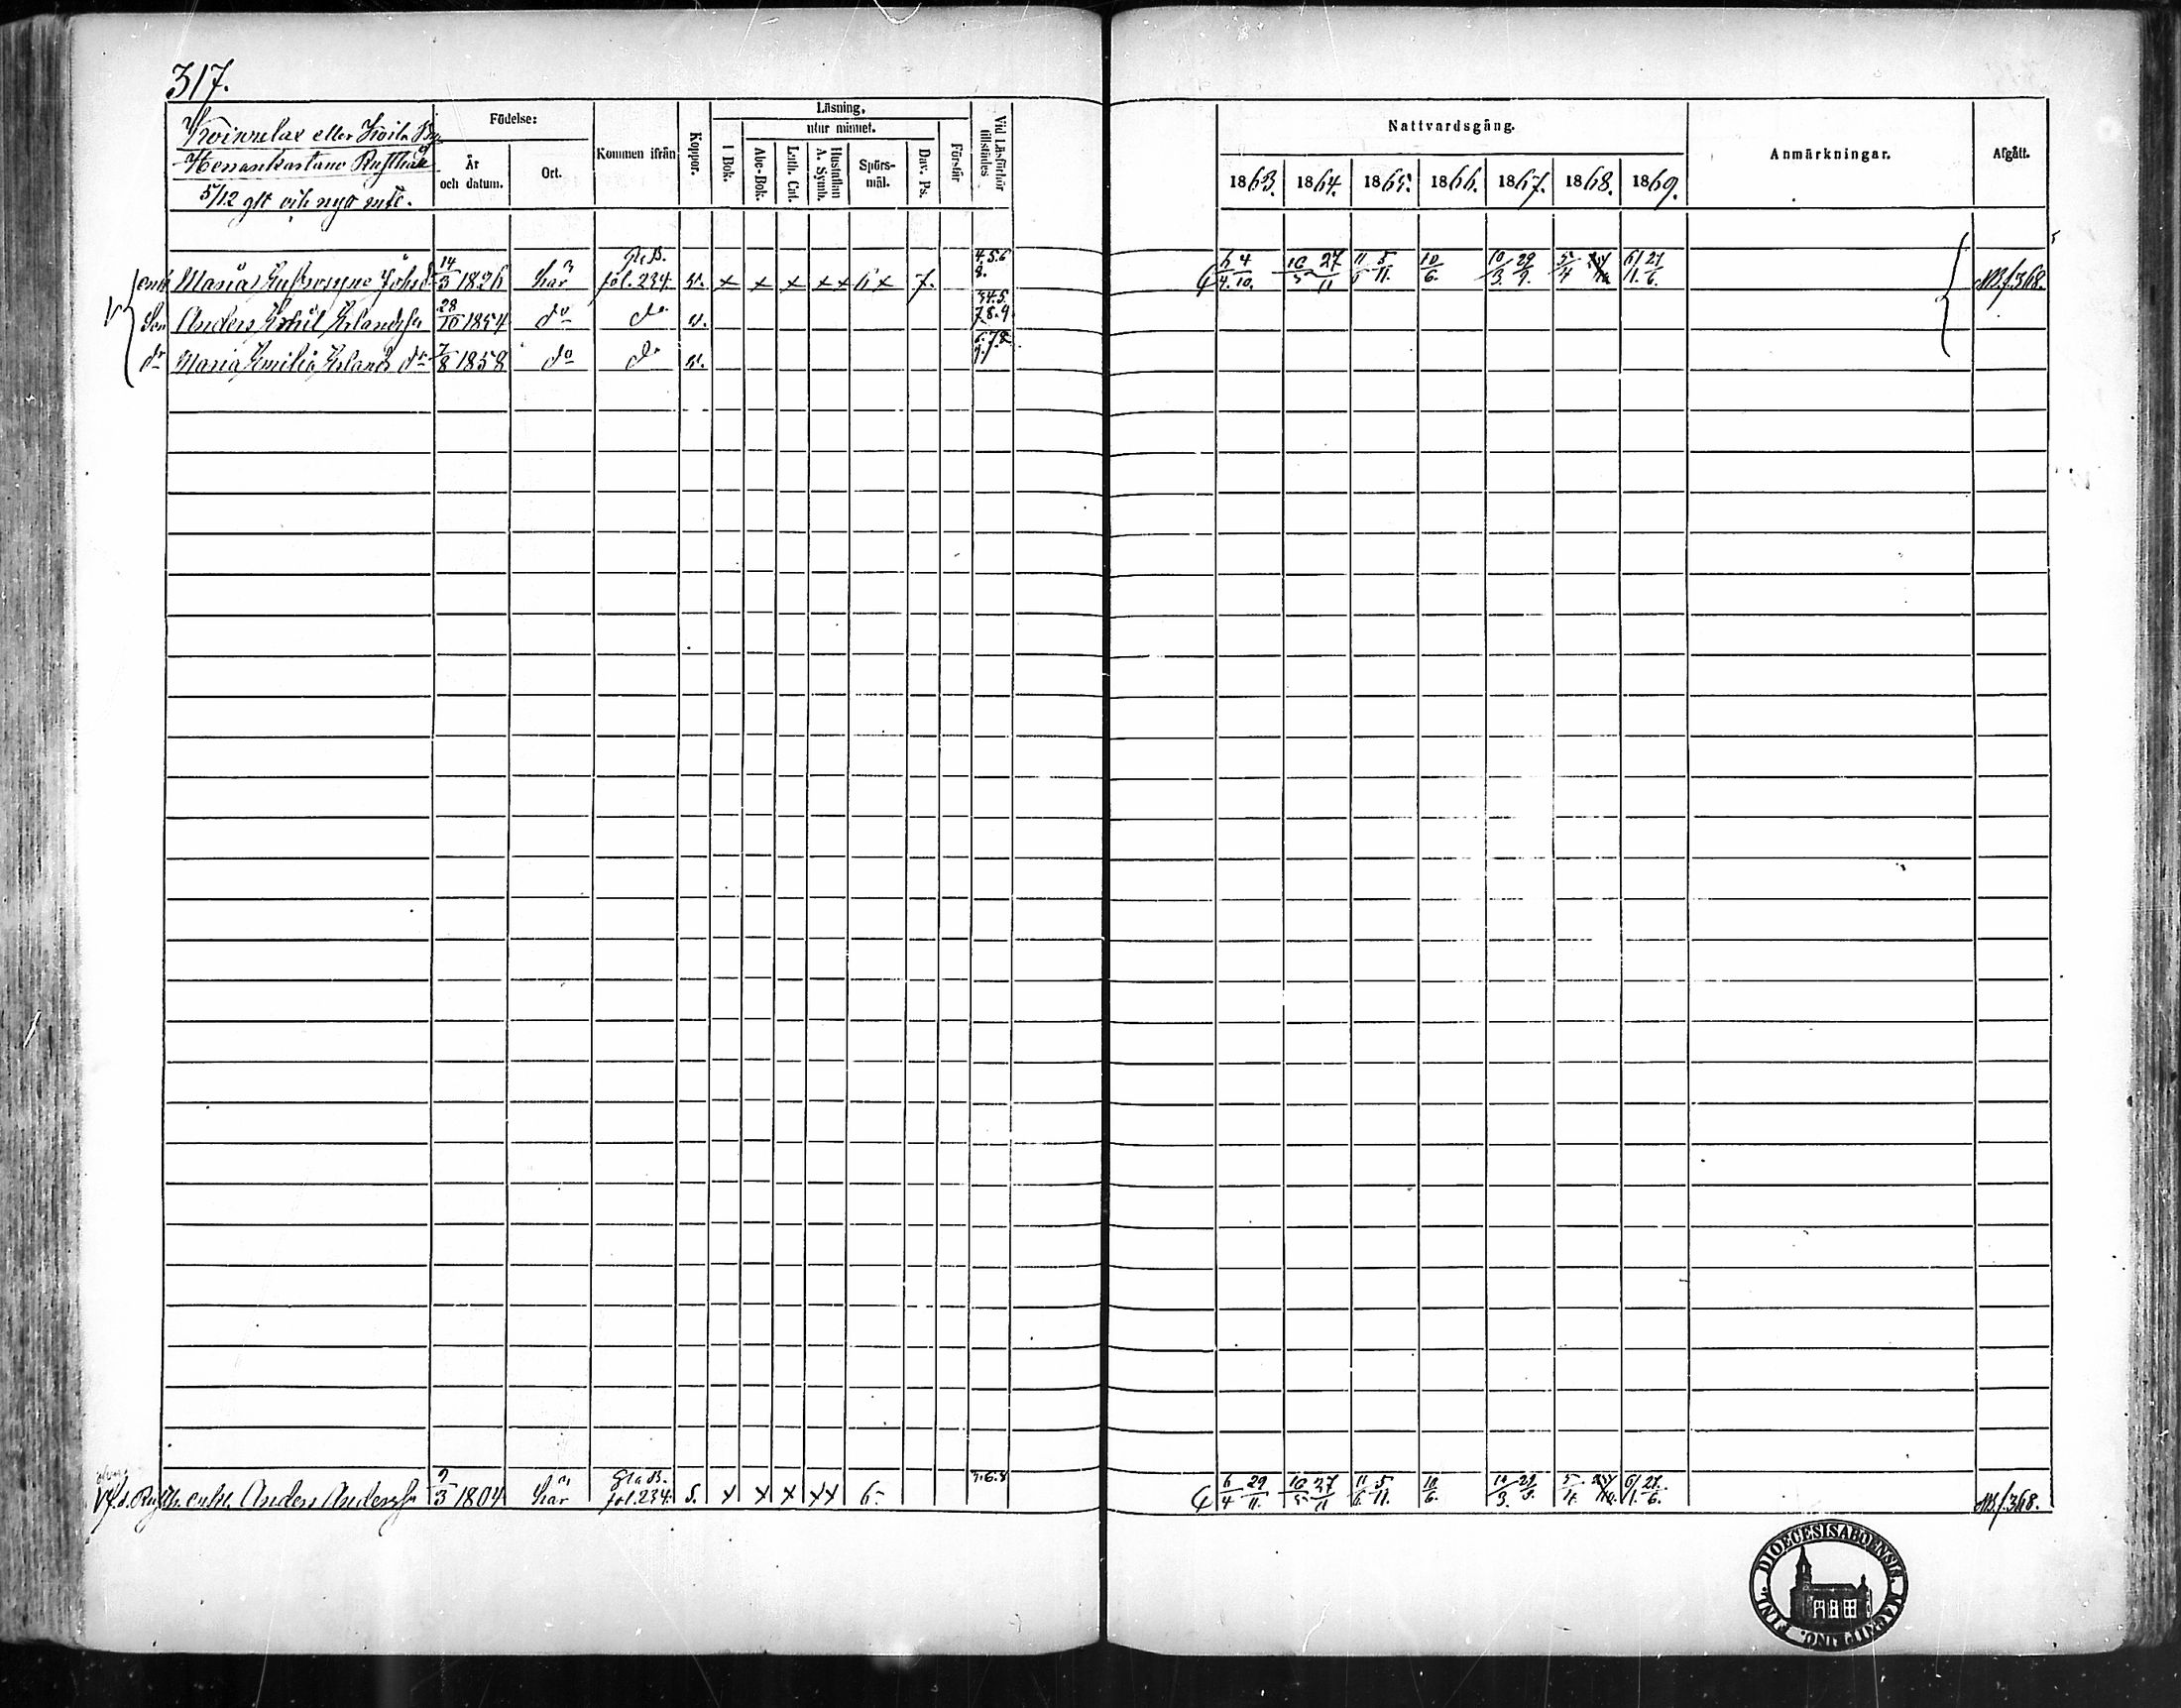 317.
Koinrelax eller Koila By
Henankartano Rusthåll
5/12 glt
Födelse:
År och datum.
Ort.
Kommen ifrån
Koppor.
Läsning,
utur minnet.
I Bok.
Abc-Bok.
Luth. Cat.
Hustaflan A. Symb.
Spörs-mål.
Dav. Ps.
Förstår
Vid Läsförhör tillstädes
Nattvardsgång.
1863. 1864. 1865. 1866. 1867. 1868. 1869.
Anmärkningar.
Afgått.
enk Maria 14/3 1826 här Gl. B. fol. 234. v. x x x x x 6 x 7. 4.5.6 8. 6/4 4/10. 16/5 27/11 11/6 5/11. 10/6. 10/3. 29/9. 5/4 6/1. 27/6. NB. f. 368.
Son Anders Erlandss. 28/10 1854 do do v. 3.4.5. 7.8.9
dr Maria Emilia Erlands dr 7/8 1858 do do v. 6.7.8 9.
f.d. Rusth. enkl. Anders Anderss. 9/3 1804 här Gla B. fol. 234. s. x x x x x 6. 6/4 29/11. 16/5 27/11 11/6 5/11. 10/6. 10/3. 29/9. 5/4. 6/1. 27/6. NB. f. 368.
FINL. DIOECESIS ABOENSIS. MAGNI PRINC.